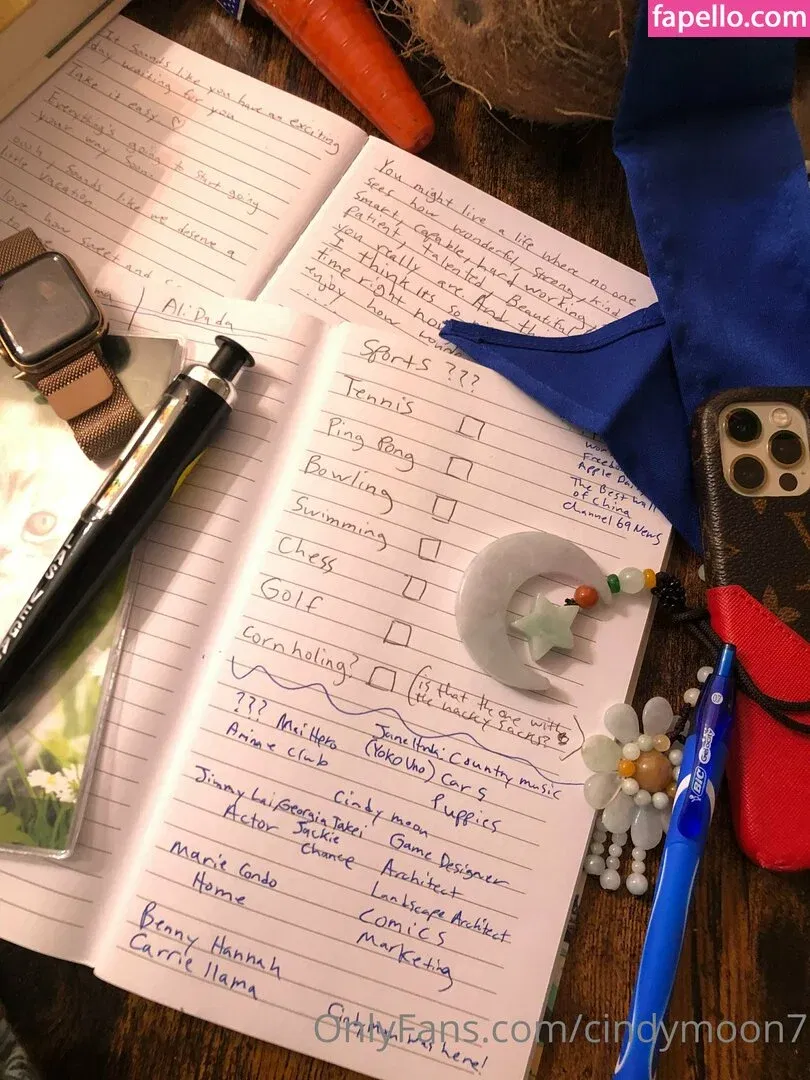 fapello.com
It sounds like you have an exciting
day waiting for you
Take it easy ♡
Everything's going to start going
your way soon
ooh, sounds like we deserve a
little vacation
love how sweet and
to
Ali Dada
You might live a life where no one
sees how wonderful, strong, kind
smart, capable, hard working,
patient, talented, Beautiful
you really are And th
I think its so
time right no
enjoy how
.....
Sports ???
Tennis
Ping Pong
Bowling
Swimming
Chess
Golf
cornholing? (is that the one with
the hacky sacks?)
Apple Da
The Best Wall
of China
channel 69 News
??? Mei Hero
Anime club
Country music
(Yoko Uno) Cars
Puppies
Jimmy Lai, Georgia Takei
Actor Jackie
Chance
Cindy moon
Game Designer
Architect
Landscape Architect
Comics
Marketing
Marie Condo
Home
Benny Hannah
Carrie llama
Cindy Moon was here!
BIC
OnlyFans.com/cindymoon7